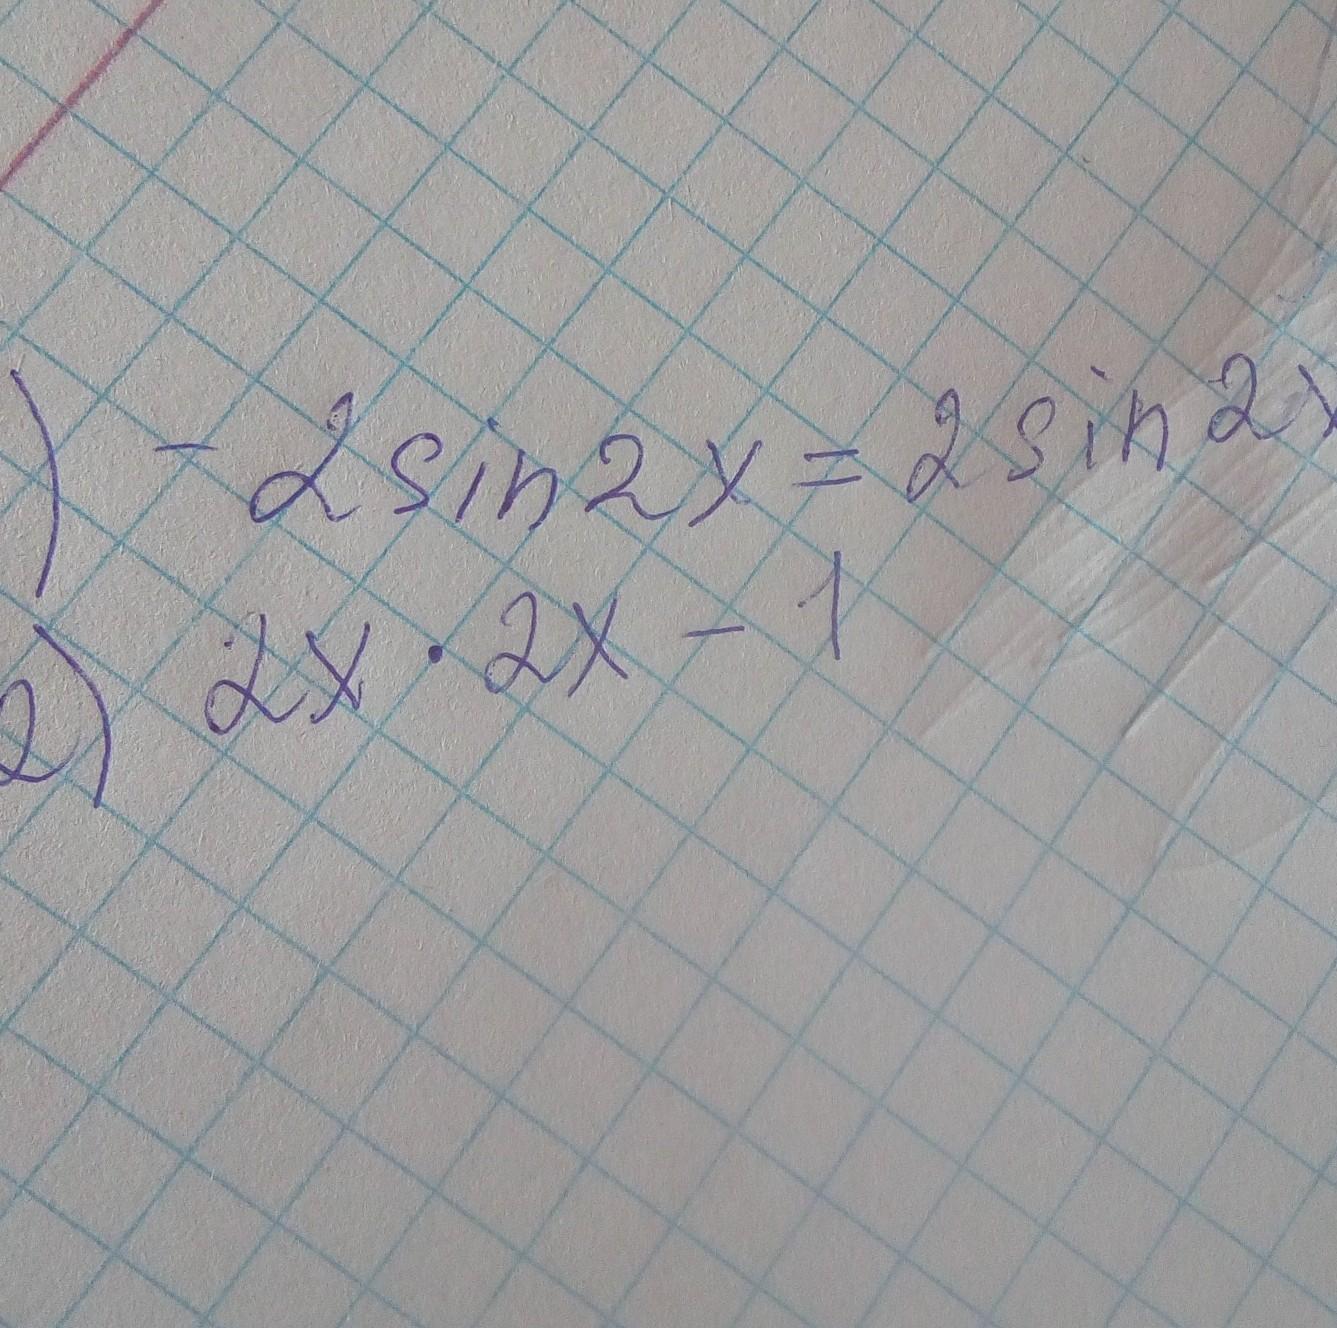 ) - 2 sin 2x = 2 sin 2x
2) 2x · 2x - 1